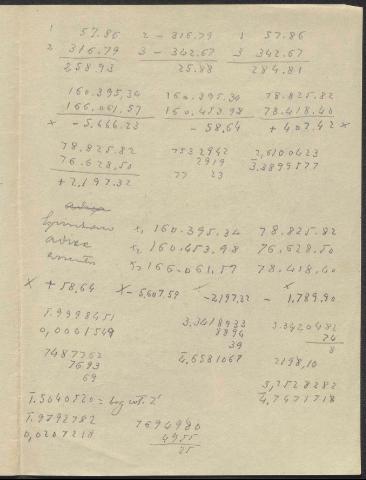 1 57.86 2 - 316.79 1 57.86
2 316.79 3 - 342.67 3 342.67
258.93 25.88 284.81
160.395,34 160.395.34 78.825.82
166.061.57 160.453,98 78.418.40
x - 5.666.23 - 58,64 + 407.42 x
78.825.82 7532942 2,6100423
76.628,50 2919 3.3899577
+ 2,197.32 77 23
x, 160.395.34 78.825.82
x, 160.453.98 76.628.50
x, 166.061.57 78.418.40
x + 58,64 x - 5,607.59 - 2,197.32 - 1,789.90
1.9998451 3,3418933 3.3420482
0,0001549 8894 74
7487762 39 8
7693 4,6581067 2198,10
69 4,7471718
1.5040520 = log cot. 2'
1.9792782 7694980
0,0207218 4955
25